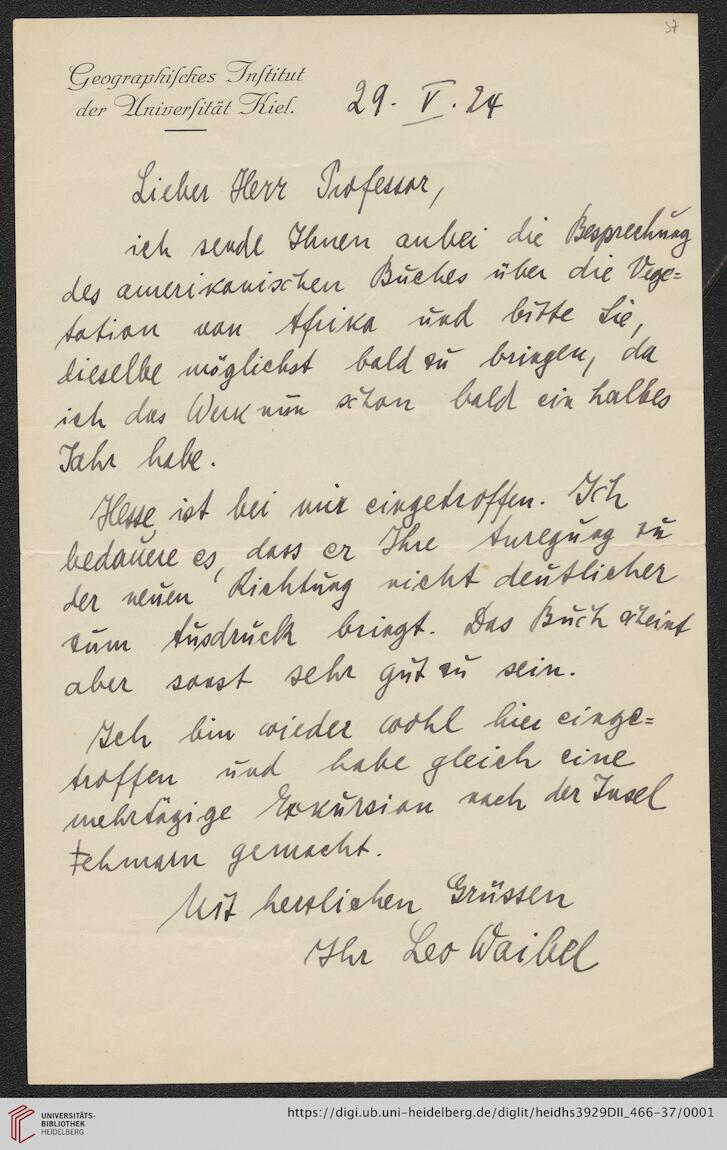 37
Geographisches Institut
der Universität Kiel.
29. V. 24
Lieber Herr Professor,
ich sende Ihnen anbei die Besprechung
des amerikanischen Buches über die Vege=
tation von Afrika und bitte Sie,
dieselbe möglichst bald zu bringen, da
ich das Werk nun schon bald ein halbes
Jahr habe.
Hesse ist bei mir eingetroffen. Ich
bedauere es, dass er Ihre Anregung zu
der neuen Richtung nicht deutlicher
zum Ausdruck bringt. Das Buch scheint
aber sonst sehr gut zu sein.
Ich bin wieder wohl hier einge=
troffen und habe gleich eine
mehrtägige Exkursion nach der Insel
Fehmarn gemacht.
Mit herzlichen Grüssen
Ihr Leo Waibel
UNIVERSITÄTS-
BIBLIOTHEK
HEIDELBERG
https://digi.ub.uni-heidelberg.de/diglit/heidhs3929DII_466-37/0001